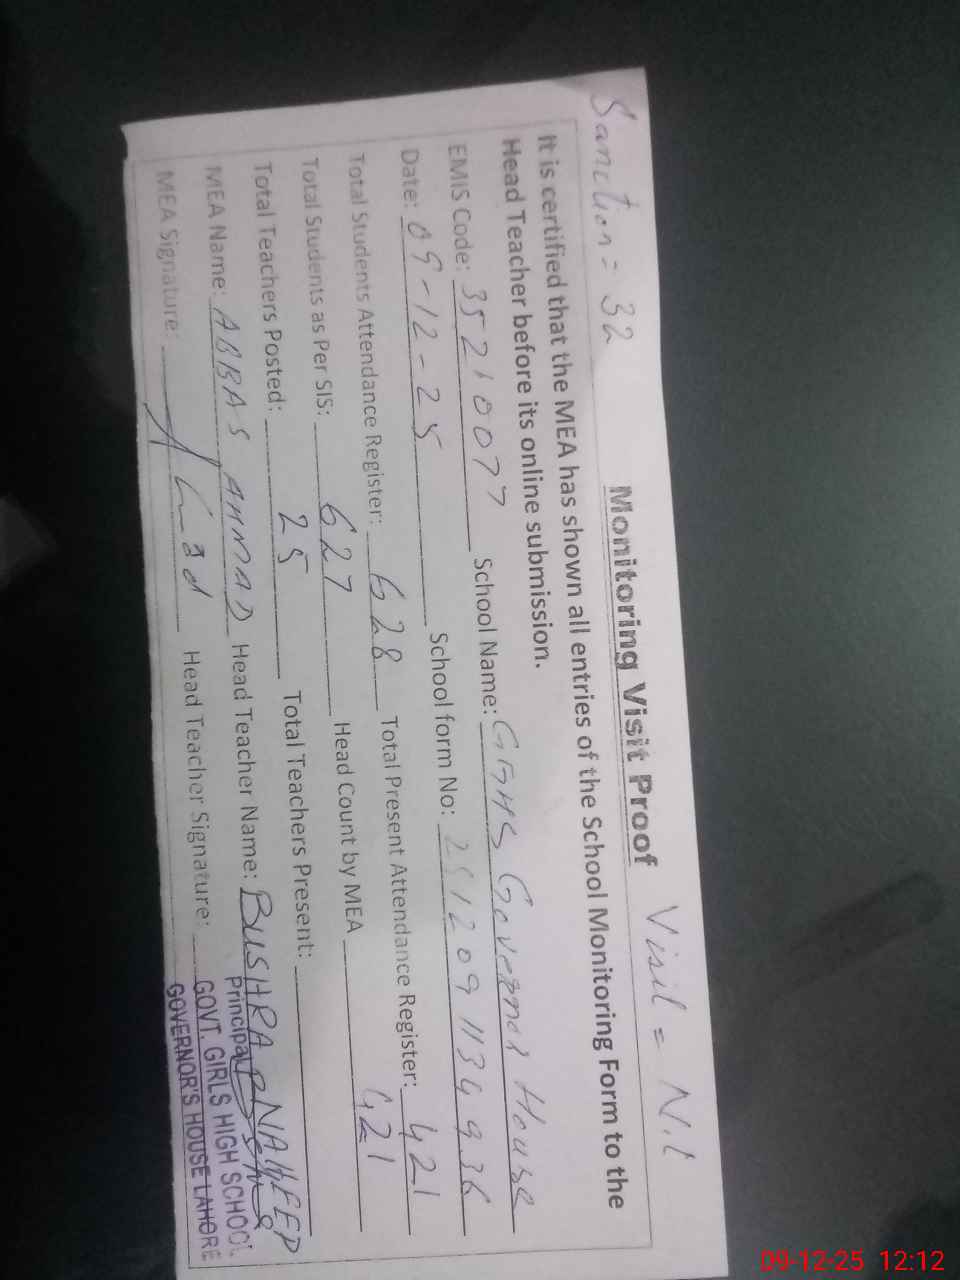 Sanction = 32
Monitoring Visit Proof Visit = Nil
It is certified that the MEA has shown all entries of the School Monitoring Form to the
Head Teacher before its online submission.
EMIS Code: 35210077 School Name: GGHS Governor House
Date: 09-12-25 School form No:
Total Students Attendance Register: 628 Total Present Attendance Register: 421
Total Students as Per SIS: 627 Head Count by MEA 421
Total Teachers Posted: 25 Total Teachers Present:
MEA Name: ABBAS AHMAD Head Teacher Name: BUSHRA
MEA Signature: Head Teacher Signature:
Principal
GOVT. GIRLS HIGH SCHOOL
GOVERNOR'S HOUSE LAHORE
09-12-25 12:12